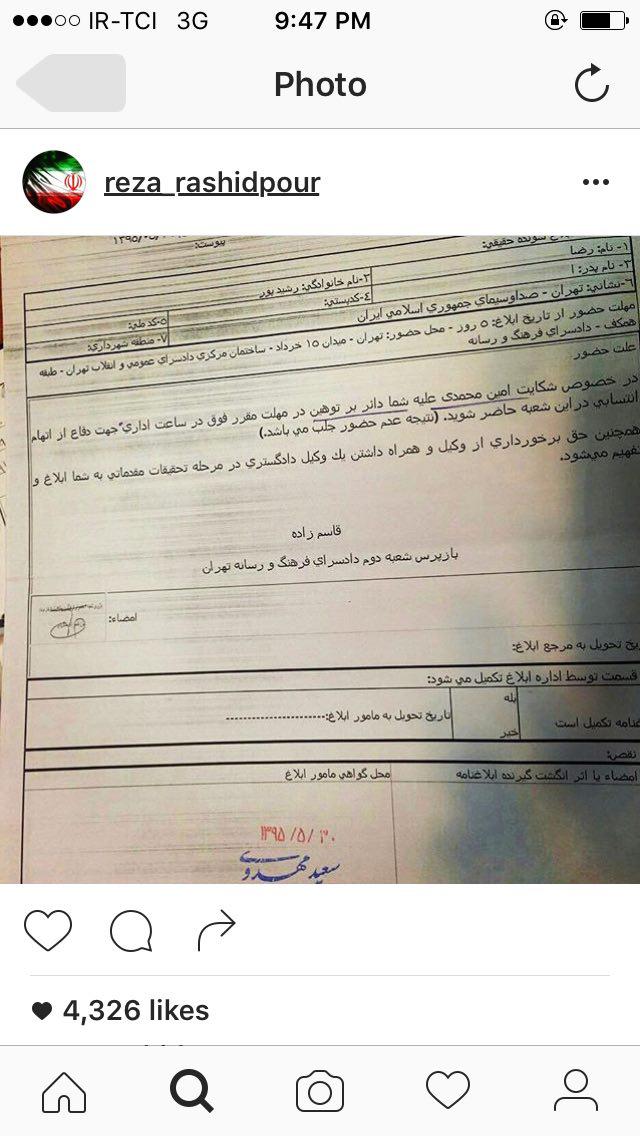 IR-TCI 3G 9:47 PM
Photo
reza_rashidpour
پیوست:
۱- نام: رضا
۲-نام خانوادگي: رشید پور
۳- نام پدر: ا
۴-کدپستي:
۵-کد ملي:
۶-نشاني: تهران - صداوسیماي جمهوري اسلامي ایران
۷- منطقه شهرداري:
مهلت حضور از تاریخ ابلاغ: ۵ روز - محل حضور: تهران - میدان ۱۵ خرداد - ساختمان مرکزي دادسراي عمومي و انقلاب تهران - طبقه
همکف - دادسراي فرهنگ و رسانه
علت حضور
در خصوص شکایت امین محمدي علیه شما دائر بر توهین در مهلت مقرر فوق در ساعت اداري جهت دفاع از اتهام
انتسابي در این شعبه حاضر شوید. (نتیجه عدم حضور جلب مي باشد.)
همچنین حق برخورداري از وکیل و همراه داشتن یك وکیل دادگستري در مرحله تحقیقات مقدماتي به شما ابلاغ و
تفهیم مي‌شود.
قاسم زاده
بازپرس شعبه دوم دادسراي فرهنگ و رسانه تهران
امضاء:
یخ تحویل به مرجع ابلاغ:
قسمت توسط اداره ابلاغ تکمیل مي شود:
بله
غنامه تکمیل است
تاریخ تحویل به مامور ابلاغ:-----------------------
خیر
نقص:
امضاء یا اثر انگشت گیرنده ابلاغنامه
محل گواهي مامور ابلاغ
۱۳۹۵/۵/۳۰
سعید مهدوی
4,326 likes